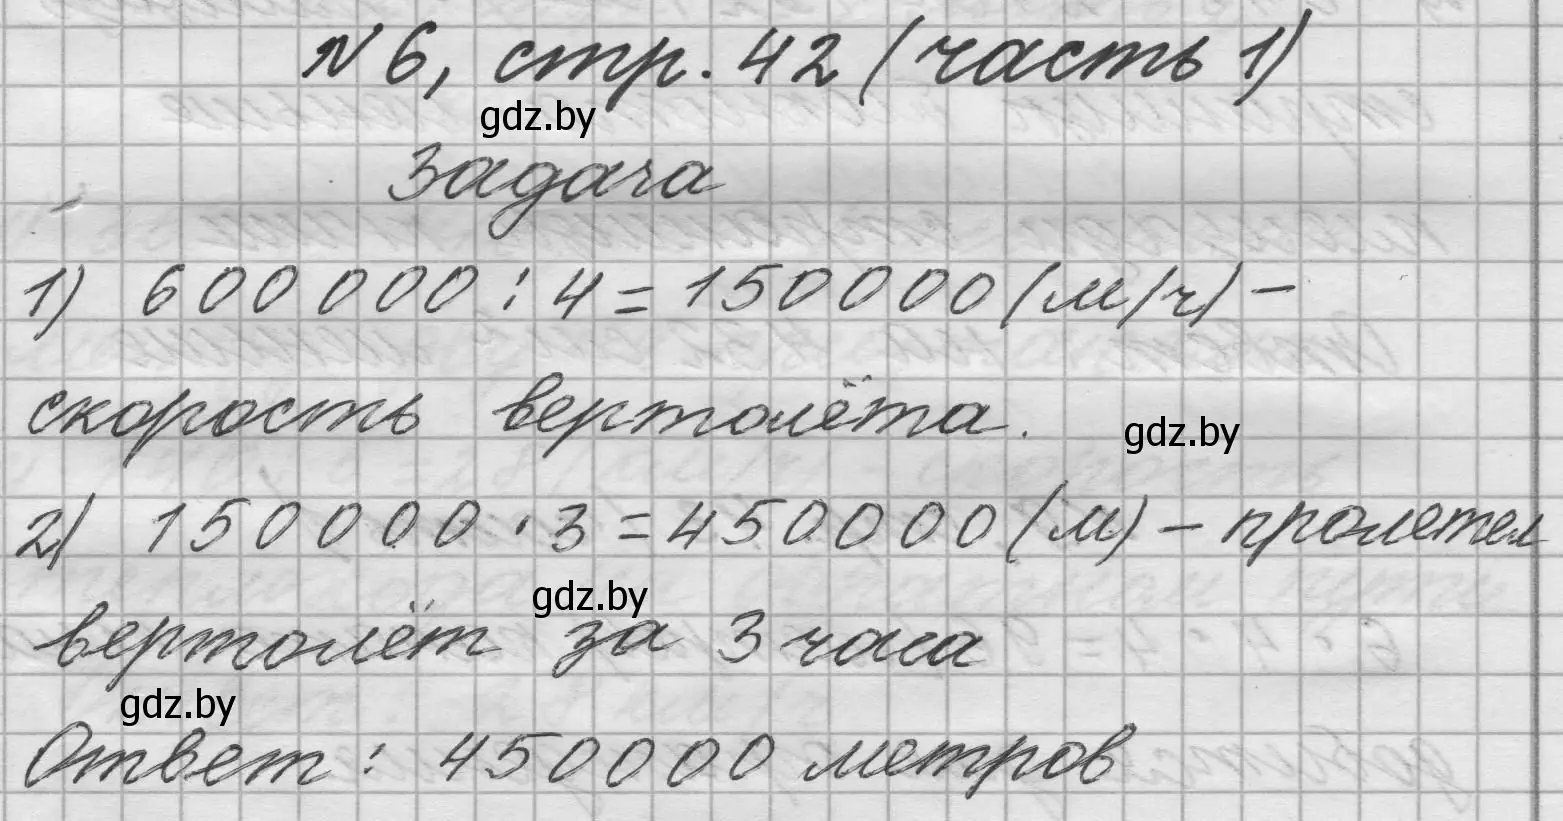 №6, стр. 42 (часть 1)
gdz.by
Задача
1) 600 000 : 4 = 150000 (м/ч) –
скорость вертолёта.
gdz.by
2) 150000 · 3 = 450000 (м) – пролетел
gdz.by
вертолёт за 3 часа
gdz.by
Ответ: 450000 метров